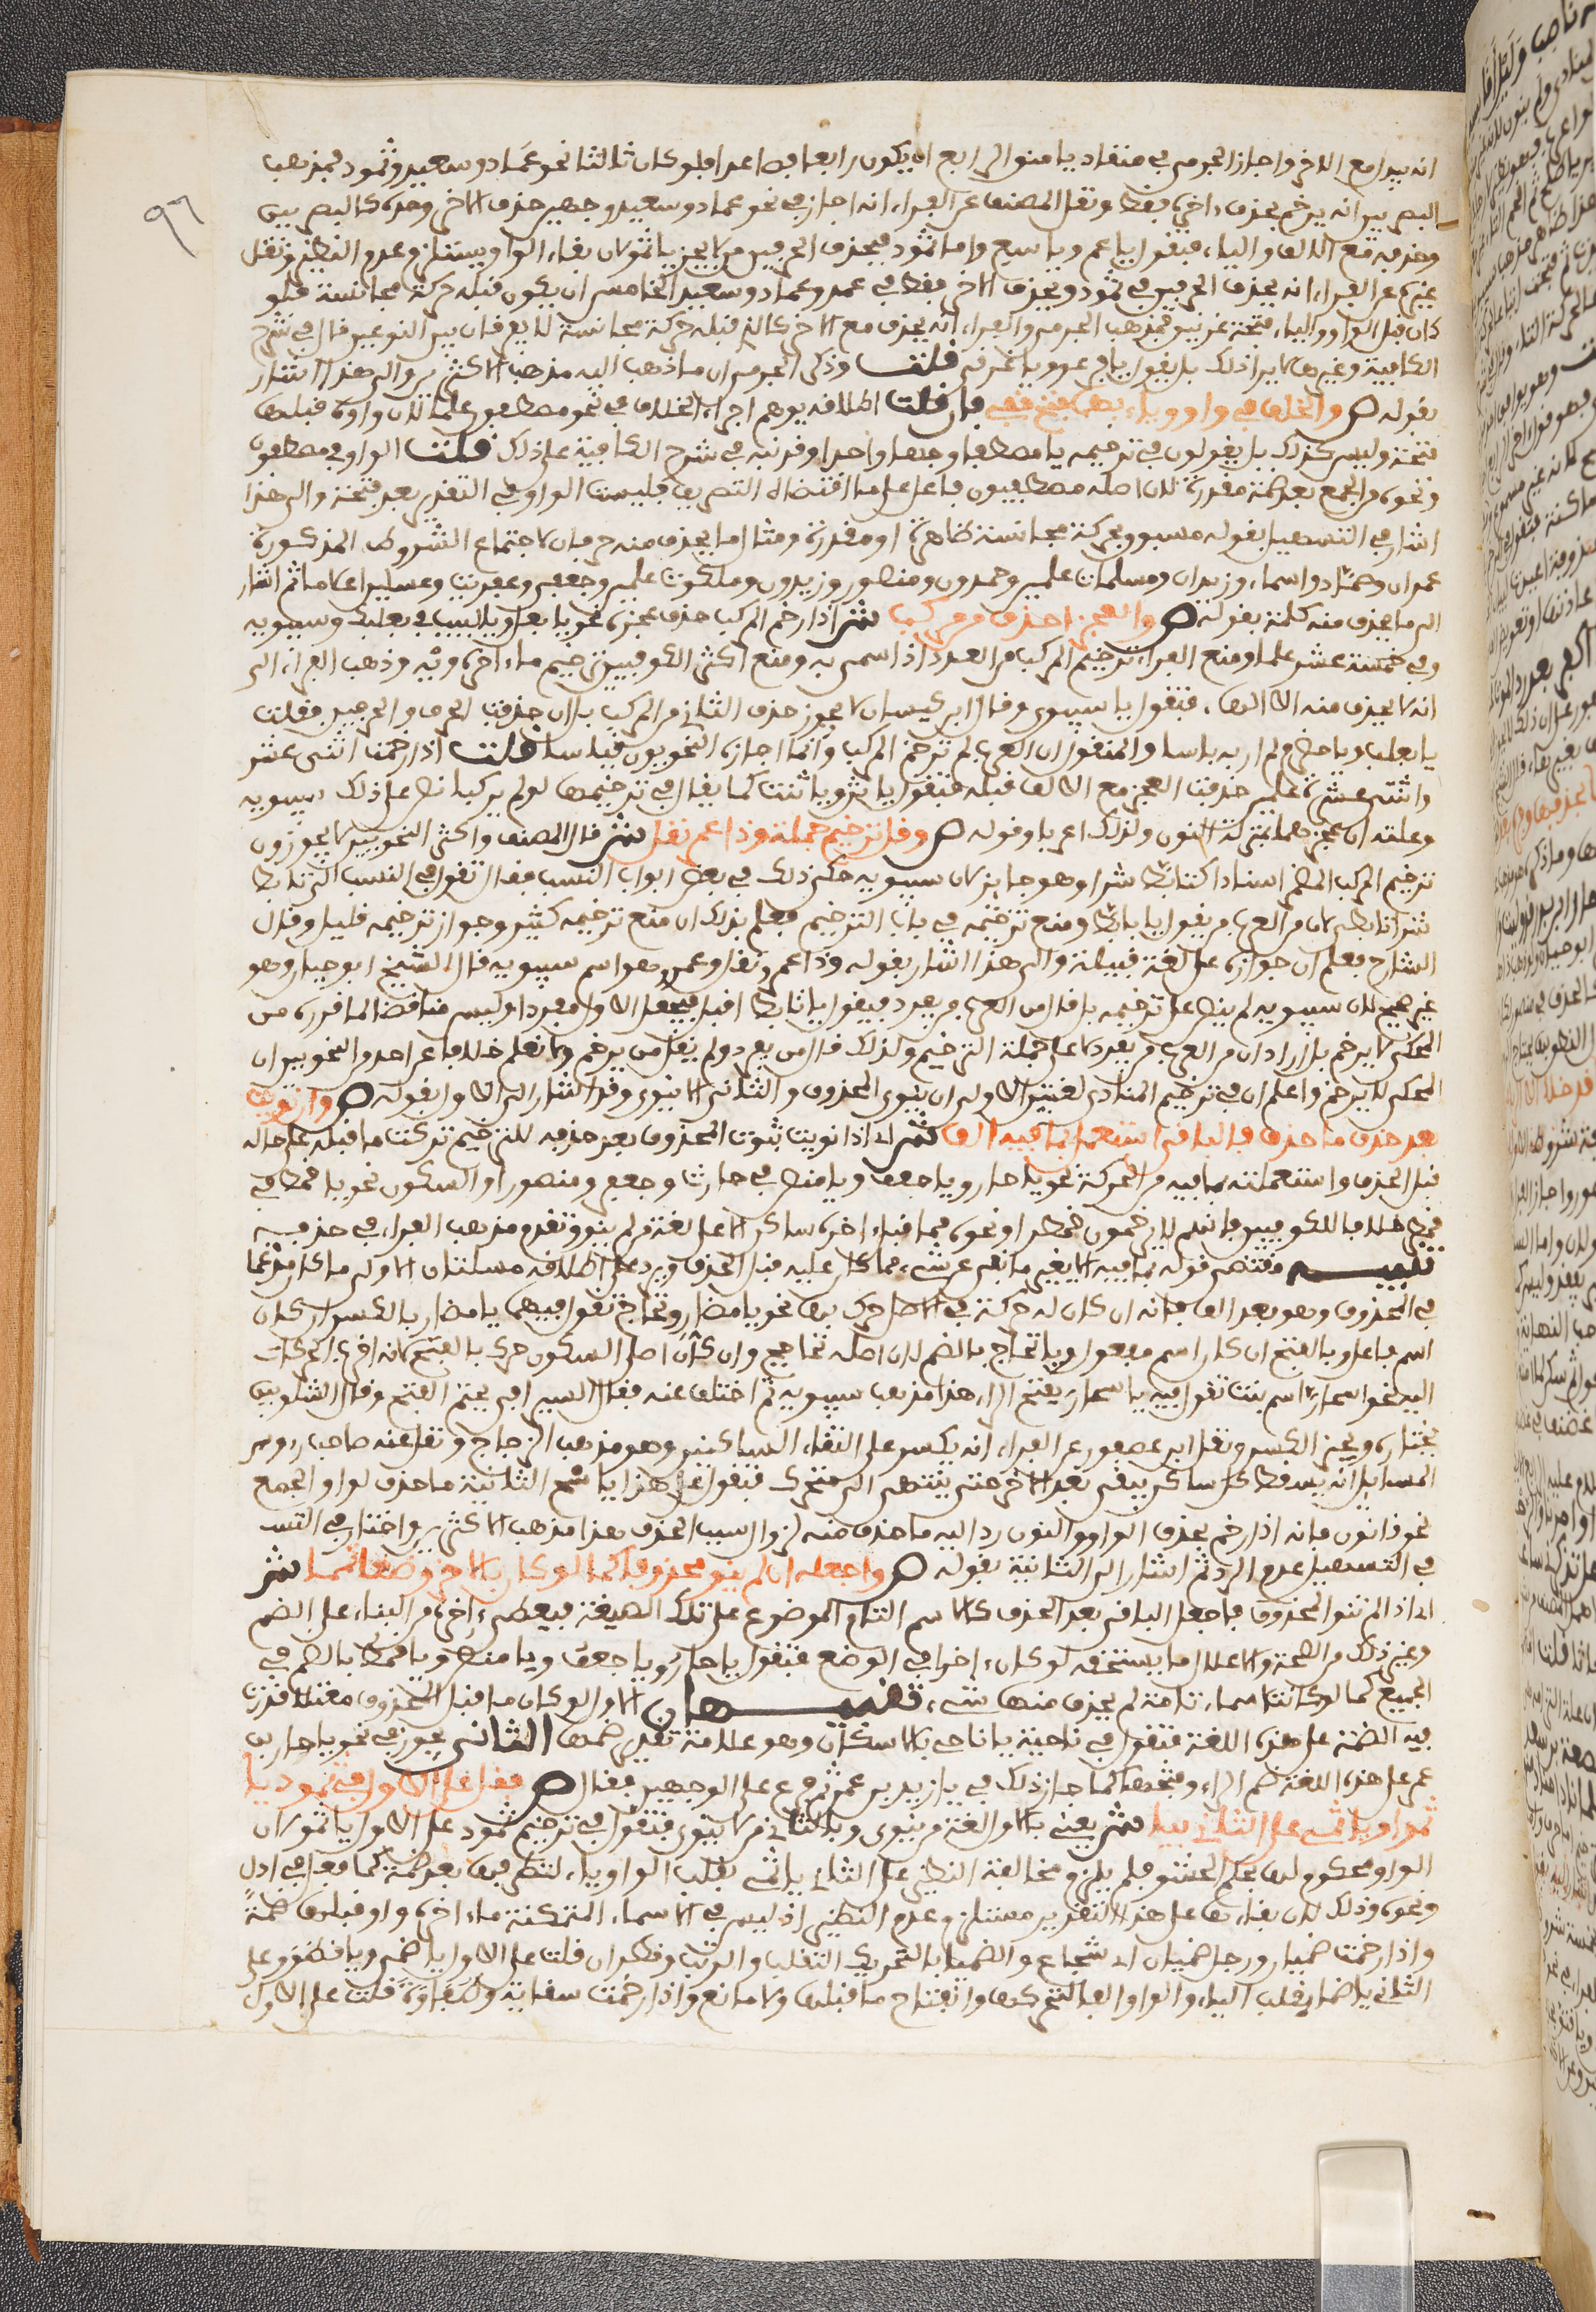 انه يبدا مع الاخر واجاز الجرمي في منقاد يا منو الرابع ان يكون رابعا فصاعدا فلو كان ثالثا نحو عماد وسعيد وثمود فمذهب
٩٦
البصريين انه يرخم بحذف اخره فقط ونقل المصنف عن الفراء انه اجاز في نحو عماد وسعيد وجهين حذف الاخر وحده كالبصريين
وحذفه مع الالف والياء فيقول يا عم ويا سع واما ثمود فيحذف الحرفين ولا يجيز يا ثمو لان بقاء الواو يستلزم عدم النظير ونقل
غيره عن الفراء انه يحذف الحرفين في ثمود ويحذف الاخر فقط في عمد وعماد وسعيد الخامس ان يكون قبله حركة مجانسة فلو
كان قبل الواو والياء فتحة غرنيق فمذهب الجرمي والفراء انه يحذف مع الاخر كالذي قبله حركة مجانسة لا يفرقان بين النوعين قال في شرح
الكافية وغيرهما لا يرا ذلك بل يقول يا فرعو ويا غرني قلت وذكر الجرمي ان ما ذهب اليه مذهب الاكثرين والى هذا اشار
بقوله ص والخلف في واو وياء بهما فتح قفي فان قلت اطلاقه يوهم اجراء الخلاف في نحو مصطفون علما لان واوه قبلها
فتحة وليس كذلك بل يقولون في ترخيمه يا مصطف وجها واحدا وقد نبه في شرح الكافية على ذلك قلت الواو في مصطفون
ونحوه من الجمع بعد ضمة مقدرة لان اصله مصطفيون فاعل على ما اقتضاه التصريف فليست الواو في التقدير بعد فتحة والى هذا
اشار في التسهيل بقوله مسبوق بحركة مجانسة ظاهرة او مقدرة ومثال ما يحذف منه حرفان لاجتماع الشروط المذكورة
عمران وحماد واسماء وزيدان ومسلمات علمين وحمدون ومنصور وزيدون وملكوت علمين وجعفر وعفريت وغسلين اعلاما ثم اشار
الى ما يحذف منه كلمة بقوله ص والعجز احذف من مركب ش اذا رخم المركب حذف عجزه نحو يا بعل ويا سيب في بعلبك وسيبويه
وفي خمسة عشر علما ومنع الفراء ترخيم المركب من العدد اذا سمي به ومنع اكثر الكوفيين ترخيم ما اخره ويه وذهب الفراء الى
انه لا يحذف منه الا الهاء فتقول يا سيبوي وقال ابن كيسان لا يجوز حذف الثاني من المركب بل ان حذفت الحرف والحرفين فقلت
يا بعلب ويا حضرم لم ار به باسا والمنقول ان العرب لم ترخم المركب وانما اجازه النحويون قياسا قلت اذا رخمت اثني عشر
واثنتي عشرة علمين حذفت العجز مع الالف قبله فتقول يا اثن ويا اثنت كما يقال في ترخيمهما لو لم يركبا نص على ذلك سيبويه
وعلته ان عجزهما بمنزلة النون ولذلك اعربا وقوله ص وقل ترخيم جملة وذا عمرو نقل ش قال المصنف واكثر النحويين لا يجيزون
ترخيم المركب المضمن اسنادا كتابط شرا وهو جايز لان سيبويه حكى ذلك في بعض ابواب النسب فقال تقول في النسب الى تابط
شرا تابطي لان من العرب من يقول يا تابط ومنع ترخيمه في باب الترخيم فعلم بذلك ان منع ترخيمه كثير وجواز ترخيمه قليل وقال
الشارح فعلم ان جوازه على لغة قبيلة والى هذا اشار بقوله وذا عمرو نقل وعمرو هو اسم سيبويه قال الشيخ ابو حيان وهو
غير صحيح لان سيبويه لم ينص على ترخيمه بل قال من العرب من يفرد فيقول يا تابط اقبل فيجعل الاول مفردا وليس مناقضا لما قرره من
المحكي لا يرخم بل اراد ان من العرب من يفرد لا على جهة الترخيم ولذلك قال من يفرد ولم يقل من يرخم ولا نعلم خلافا عن احد من النحويين ان
المحكي لا يرخم واعلم ان في ترخيم المنادى لغتين الاولى ان ينوى المحذوف والثاني الا ينوى وقد اشار الى الاول بقوله ص وان نويت
بعد حذف ما حذف فالباقي استعمل بما فيه الف ش اي اذا نويت ثبوت المحذوف بعد حذفه للترخيم تركت ما قبله على حاله
قبل الحذف واستعملته بما فيه من الحركة نحو يا حار ويا جعف ويا منص في حارث وجعفر ومنصور او السكون نحو يا قمط في
قمطر خلافا للكوفيين فانهم لا يرخمون قمطر او نحوه مما قبل اخره ساكن الا على لغة من لم ينو وتقدم مذهب الفراء في حذفه
تنبيه مقتضى قوله بما فيه الا يغير ما بقي عن شيء مما كان عليه قبل الحذف ويرد على اطلاقه مسئلتان الاولى ما كان مدغما
في المحذوف وهو بعد الف فانه ان كان له حركة في الاصل حرك بها نحو يا مضار وتحاج تقول فيهما يا مضار بالكسر ان كان
اسم فاعل وبالفتح ان كان اسم مفعول ويا تحاج بالضم لان اصله تحاجج وان كان اصلي السكون حرك بالفتح لانه اقرب الحركات
اليه نحو اسحار اسم نبت تقول فيه يا اسحار بفتح الراء هذا مذهب سيبويه ثم اختلف عنه فقال السيرافي يحتم الفتح وقال الشلوبين
يختاره ويجيز الكسر ونقل ابن عصفور عن الفراء انه يكسر على التقاء الساكنين وهو مذهب الزجاج ونقل عنه صاحب رءوس
المسايل انه يسقط كل ساكن يبقى بعد الاخر حتى ينتهي الى متحرك فتقول على هذا يا اسح الثانية ما حذف لواو الجمع
نحو قاضون فانه اذا رخم بحذف الواو والنون رد اليه ما حذف منه لزوال سبب الحذف هذا مذهب الاكثرين واختار في التس
في التسهيل عدم الرد ثم اشار الى الثانية بقوله ص واجعله ان لم ينو محذوف كما لو كان بالاخر وضعا تمما ش
اي اذا لم تنو المحذوف فاجعل الباقي بعد الحذف كالاسم التام الموضوع على تلك الصيغة فيعطى اخره من البناء على الضم
وغير ذلك من الصحة والاعلال ما يستحقه لو كان اخرا في الوضع فتقول يا حار ويا جعف ويا منص ويا قمط بالضم في
الجميع كما لو كانت اسماء تامة لم يحذف منها شيء تنبيهان الاول لو كان ما قبل المحذوف معتلا قدرت
فيه الضمة على هذه اللغة فتقول في ناجية يا ناجي بالاسكان وهو علامة تقدير ضمها الثاني يجوز في نحو يا حار بن
عمر على هذه اللغة ضم الراء وفتحها كما جاز ذلك في يا زيد بن عمر ثم فرع على الوجهين فقال ص فقل على الاول في ثمود يا
ثمو ويا ثمي على الثاني بيا ش يعني بالاول لغة من ينوي وبالثاني من لا ينوي فتقول في ترخيم ثمود على الاول يا ثمو لان
الواو محكوم لها بحكم الحشو فلم يلزم مخالفة النظير على الثاني يا ثمي بقلب الواو ياء لتطرفها بعد ضمة كما فعل في ادل
ونحوه وذلك لان بقاءها على هذا التقدير مستلزم عدم النظير اذ ليس في الاسماء المتمكنة ما اخره واو قبلها ضمة
واذا رخمت ضميان ورجل ضميان اي شجاع والضميان بالتحريك التقلب والوثب وقطوان قلت على الاول يا ضمي ويا قطو وعلى
الثاني يا ضما يقلب الياء والواو الفا لتحركها وانفتاح ما قبلها ولا مانع واذا رخمت سقاية وشقاوة قلت على الاول